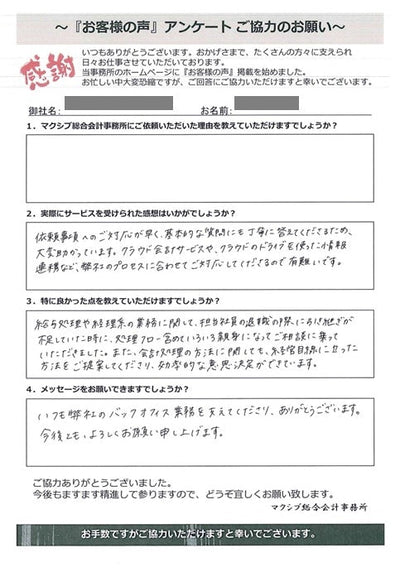 ～『お客様の声』アンケート ご協力のお願い～
感謝
いつもありがとうございます。おかげさまで、たくさんの方々に支えられ
日々お仕事させていただいております。
当事務所のホームページに『お客様の声』掲載を始めました。
お忙しい中大変恐縮ですが、ご回答にご協力いただけますと幸いでございます。
御社名： お名前：
1．マクシブ総合会計事務所にご依頼いただいた理由を教えていただけますでしょうか？
2．実際にサービスを受けられた感想はいかがでしょうか？
依頼事項へのご対応が早く、基本的な質問にも丁寧に答えてくださるため、
大変助かっています。クラウド会計サービスや、クラウドのドライブを使った情報
連携など、弊社のプロセスに合わせてご対応してくださるので有難いです。
3．特に良かった点を教えていただけますでしょうか？
給与処理や経理系の業務に関して、担当社員の退職の際に引き継ぎが
不足していた時に、処理フロー含めていろいろ親身になってご相談に乗って
いただきました。また、会計処理の方法に関しても、経営目線に立った
方法をご提案してくださり、効率的な意思決定ができています。
4．メッセージをお願いできますでしょうか？
いつも弊社のバックオフィス業務を支えてくださり、ありがとうございます。
今後とも、よろしくお願い申し上げます。
ご協力ありがとうございました。
今後もますます精進して参りますので、どうぞ宜しくお願い致します。
マクシブ総合会計事務所
お手数ですがご協力いただけますと幸いでございます。